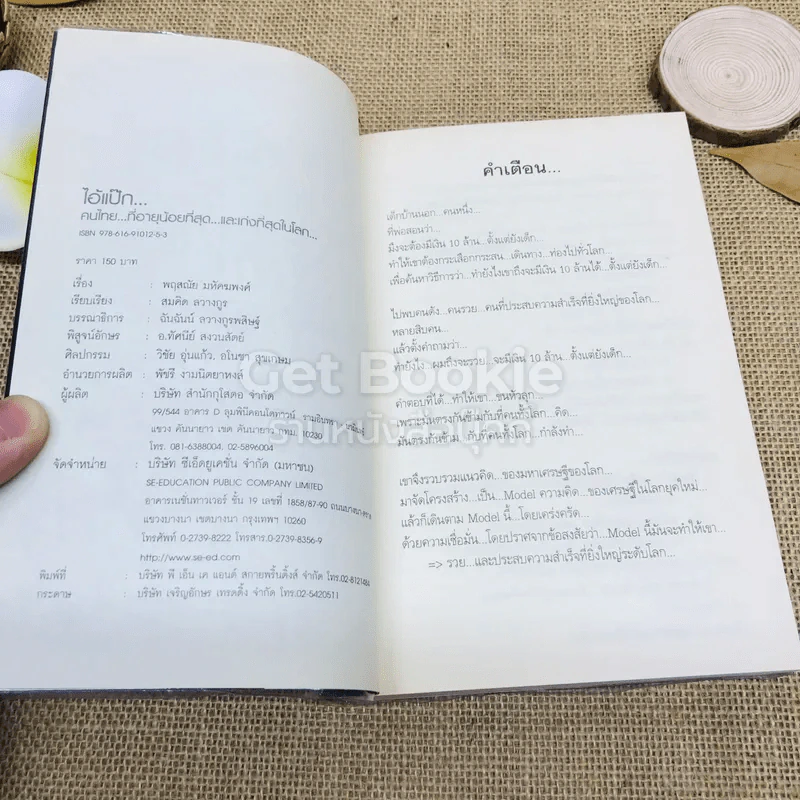 ไอ้แป๊ก...
คนไทย...ที่อายุน้อยที่สุด...และเก่งที่สุดในโลก...
ISBN 978-616-91012-5-3
ราคา 150 บาท
เรื่อง : พฤสณัย มหัคฆพงศ์
เรียบเรียง : สมคิด ลวางกูร
บรรณาธิการ : ฉันฉันน์ ลวางกูรพสิษฐ์
พิสูจน์อักษร : อ.ทัศนีย์ สงวนสัตย์
ศิลปกรรม : วิชัย อุ่นแก้ว, อโนชา สุขเกษม
อำนวยการผลิต : พัชรี งามนิตยาหงส์
ผู้ผลิต : บริษัท สำนักกุโสดอ จำกัด
99/544 อาคาร D ลุมพินีคอนโดทาวน์ รามอินทรา
แขวง คันนายาว เขต คันนายาว กทม. 10230
โทร. 081-6388004, 02-5896004
จัดจำหน่าย : บริษัท ซีเอ็ดยูเคชั่น จำกัด (มหาชน)
SE-EDUCATION PUBLIC COMPANY LIMITED
อาคารเนชั่นทาวเวอร์ ชั้น 19 เลขที่ 1858/87-90 ถนนบางนา-ตราด
แขวงบางนา เขตบางนา กรุงเทพฯ 10260
โทรศัพท์ 0-2739-8222 โทรสาร.0-2739-8356-9
http://www.se-ed.com
พิมพ์ที่ : บริษัท พี เอ็น เค แอนด์ สกายพริ้นติ้งส์ จำกัด โทร.02-8121484
กระดาษ : บริษัท เจริญอักษร เทรดดิ้ง จำกัด โทร.02-5420511
คำเตือน...
เด็กบ้านนอก...คนหนึ่ง...
ที่พ่อสอนว่า...
มึงจะต้องมีเงิน 10 ล้าน...ตั้งแต่ยังเด็ก...
ทำให้เขาต้องกระเสือกกระสน...เดินทาง...ท่องไปทั่วโลก...
เพื่อค้นหาวิธีการว่า...ทำยังไงเขาถึงจะมีเงิน 10 ล้านได้...ตั้งแต่ยังเด็ก...
ไปพบคนดัง...คนรวย...คนที่ประสบความสำเร็จที่ยิ่งใหญ่ของโลก...
หลายสิบคน...
แล้วตั้งคำถามว่า...
ทำยังไง...ผมถึงจะรวย...จะมีเงิน 10 ล้าน...ตั้งแต่ยังเด็ก...
Get Bookie
ร้านหนังสือบุ๊กกี้
คำตอบที่ได้...ทำให้เขา...ขนหัวลุก...
เพราะมันตรงกันข้ามกับที่คนทั้งโลก...คิด...
มันตรงกันข้าม...กับที่คนทั้งโลก...กำลังทำ...
เขาจึงรวบรวมแนวคิด...ของมหาเศรษฐีของโลก...
มาจัดโครงสร้าง...เป็น...Model ความคิด...ของเศรษฐีในโลกยุคใหม่...
แล้วก็เดินตาม Model นี้...โดยเคร่งครัด...
ด้วยความเชื่อมั่น...โดยปราศจากข้อสงสัยว่า...Model นี้มันจะทำให้เขา...
=> รวย...และประสบความสำเร็จที่ยิ่งใหญ่ระดับโลก...